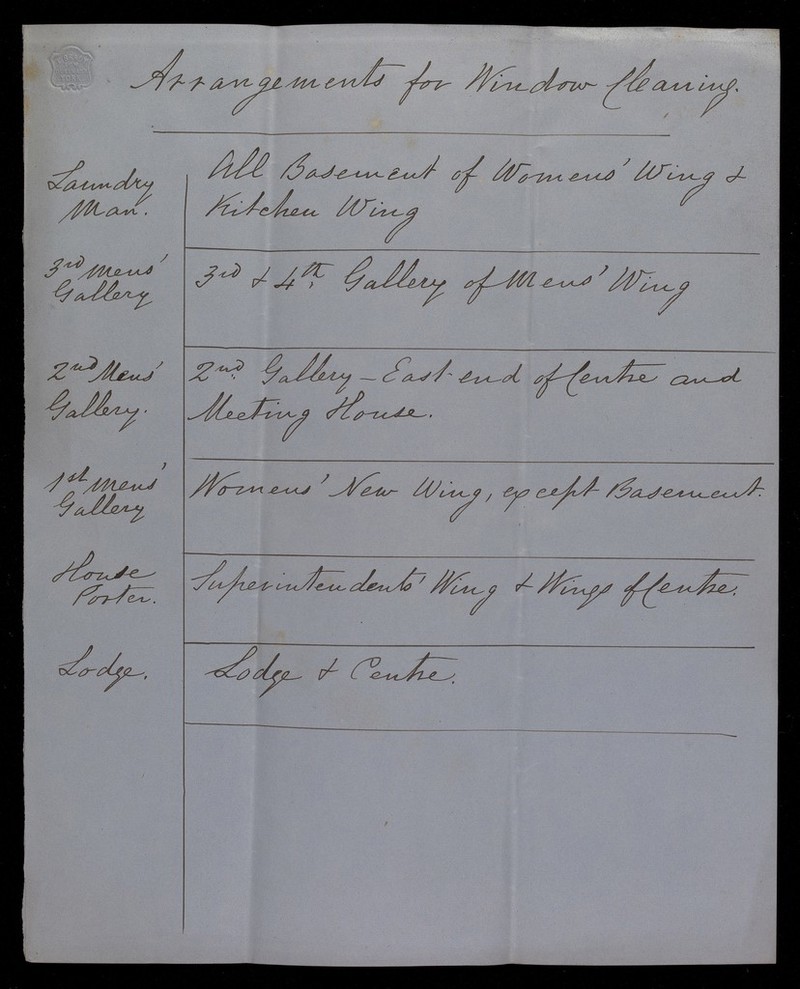 Arrangements for Window Cleaning.
Laundry
Man.
All Basement of Womens' Wing &
Kitchen Wing
3rd Mens'
Gallery
3rd & 4th. Gallery of Mens' Wing
2nd Mens'
Gallery.
2nd. Gallery - East end of Centre and
Meeting House.
1st Mens'
Gallery
Womens' New Wing, except Basement.
House
Porter.
Superintendents' Wing & Wings of Centre.
Lodge.
Lodge & Centre.